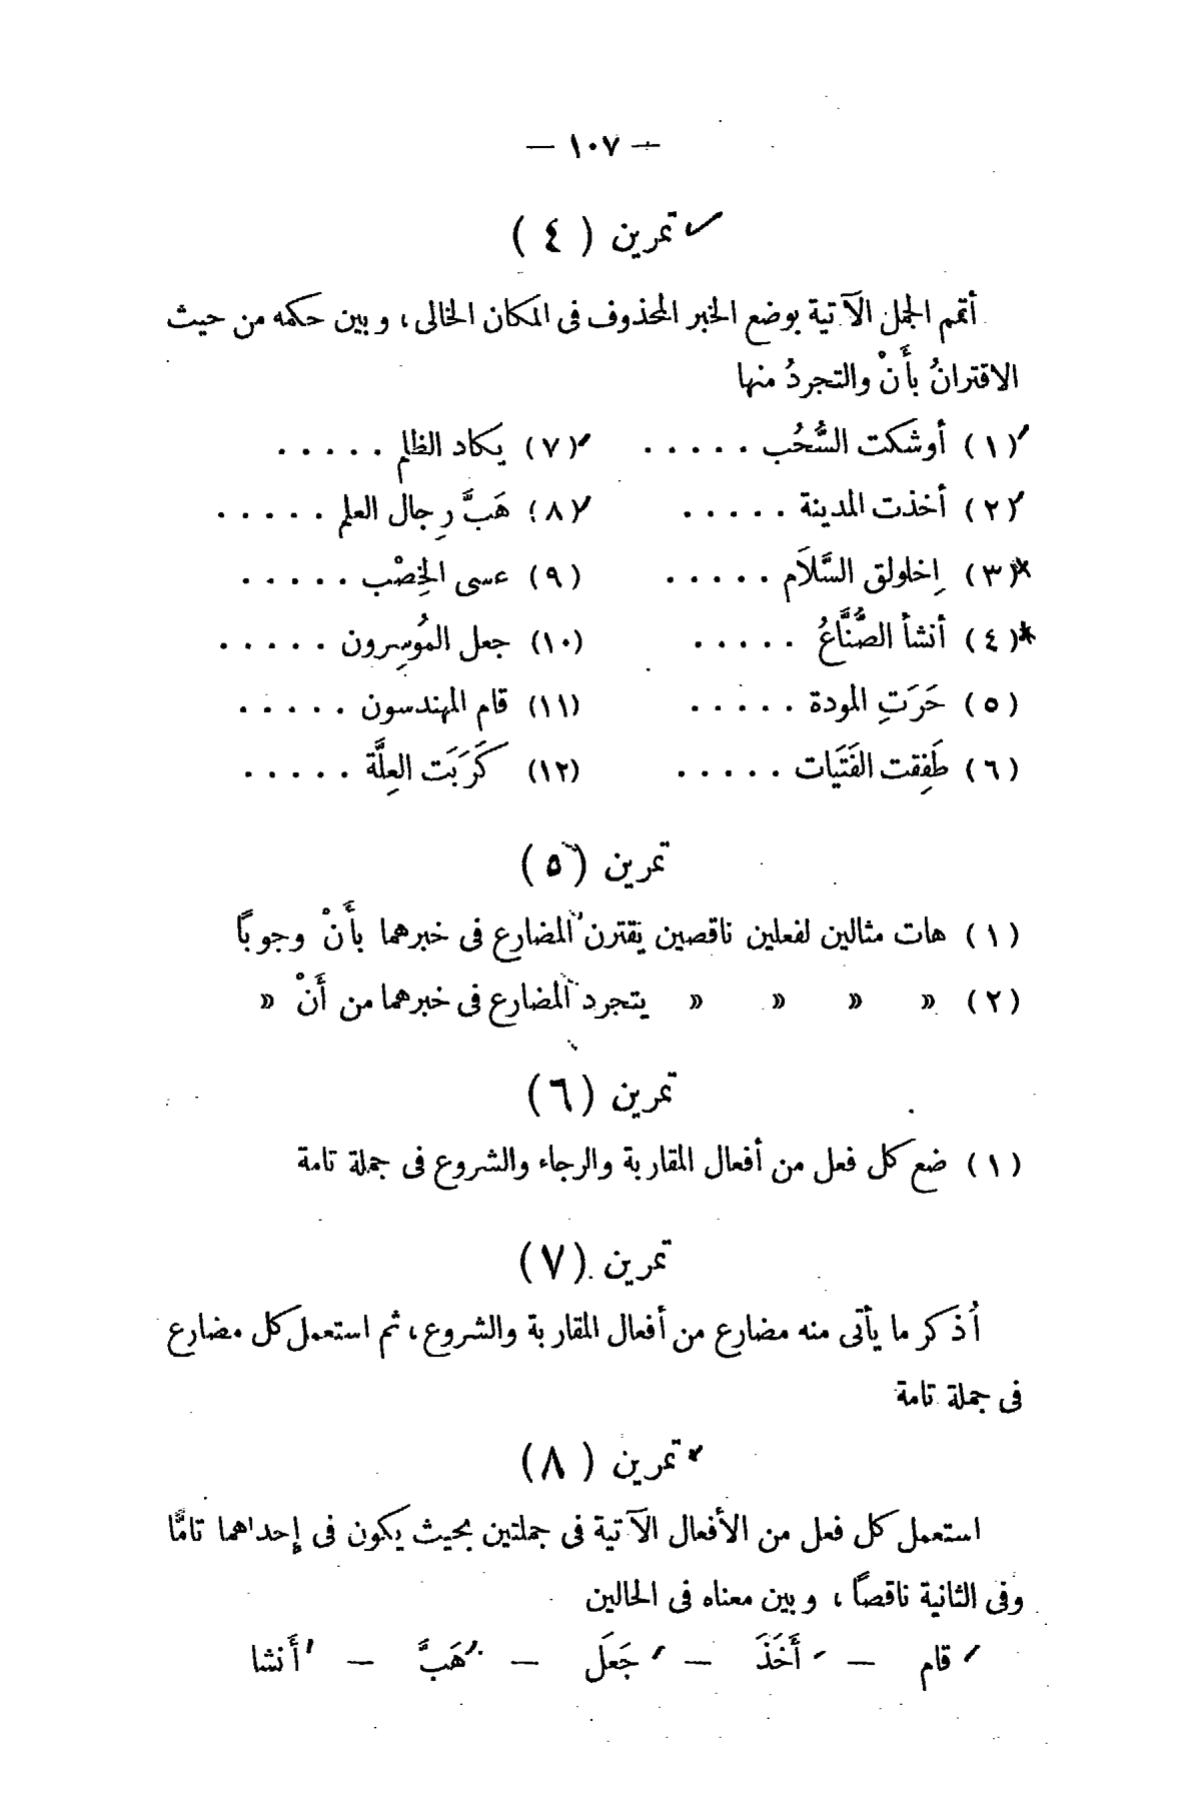 — ١٠٧ —
تمرين ( ٤ )
أتمم الجمل الآتية بوضع الخبر المحذوف فى المكان الخالى ، وبين حكمه من حيث
الاقترانُ بأَنْ والتجردُ منها
(١) أوشكت السُّحُب . . . . .
(٢) أخذت المدينة . . . . .
(٣) اِخلولق السَّلاَم . . . . .
(٤) أنشأ الصُّنَّاعُ . . . . .
(٥) حَرَتِ المودة . . . . .
(٦) طَفِقت الفَتَيَات . . . . .
(٧) يكاد الظلم . . . . .
(٨) هَبَّ رِجال العلم . . . . .
(٩) عسى الخِصْب . . . . .
(١٠) جعل المُوسِرون . . . . .
(١١) قام المهندسون . . . . .
(١٢) كَرَبَت العِلَّة . . . . .
تمرين (٥)
(١) هات مثالين لفعلين ناقصين يقترن المضارع فى خبرهما بأَنْ وجوبًا
(٢) » » » » يتجرد المضارع فى خبرهما من أَنْ »
تمرين (٦)
(١) ضع كل فعل من أفعال المقاربة والرجاء والشروع فى جملة تامة
تمرين (٧)
أُذكر ما يأتى منه مضارع من أفعال المقاربة والشروع ، ثم استعمل كل مضارع
فى جملة تامة
تمرين (٨)
استعمل كل فعل من الأفعال الآتية فى جملتين بحيث يكون فى إحداهما تامًّا
وفى الثانية ناقصًا ، وبين معناه فى الحالين
قام — أَخَذَ — جَعَل — هَبَّ — أَنشا